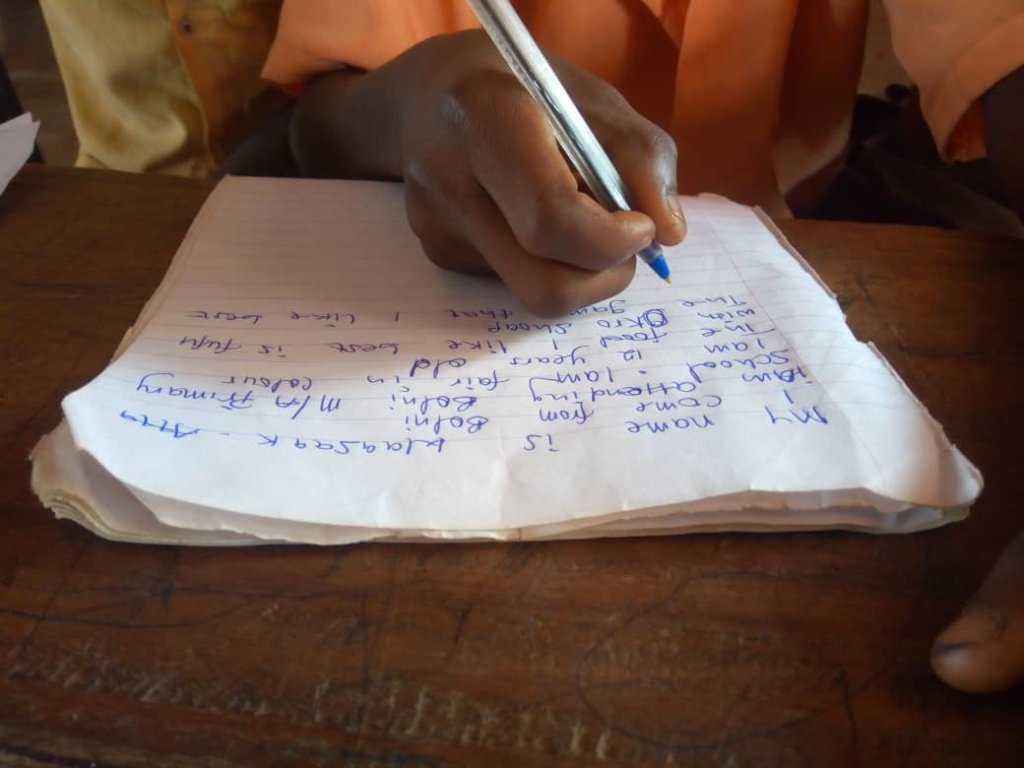 My name is
I come from Bolni
I am attending Bolni M/A Primary
School. I am fair in colour
I am 12 years old
The food I like best is fufu
with Okro shoap
The gam that I like best